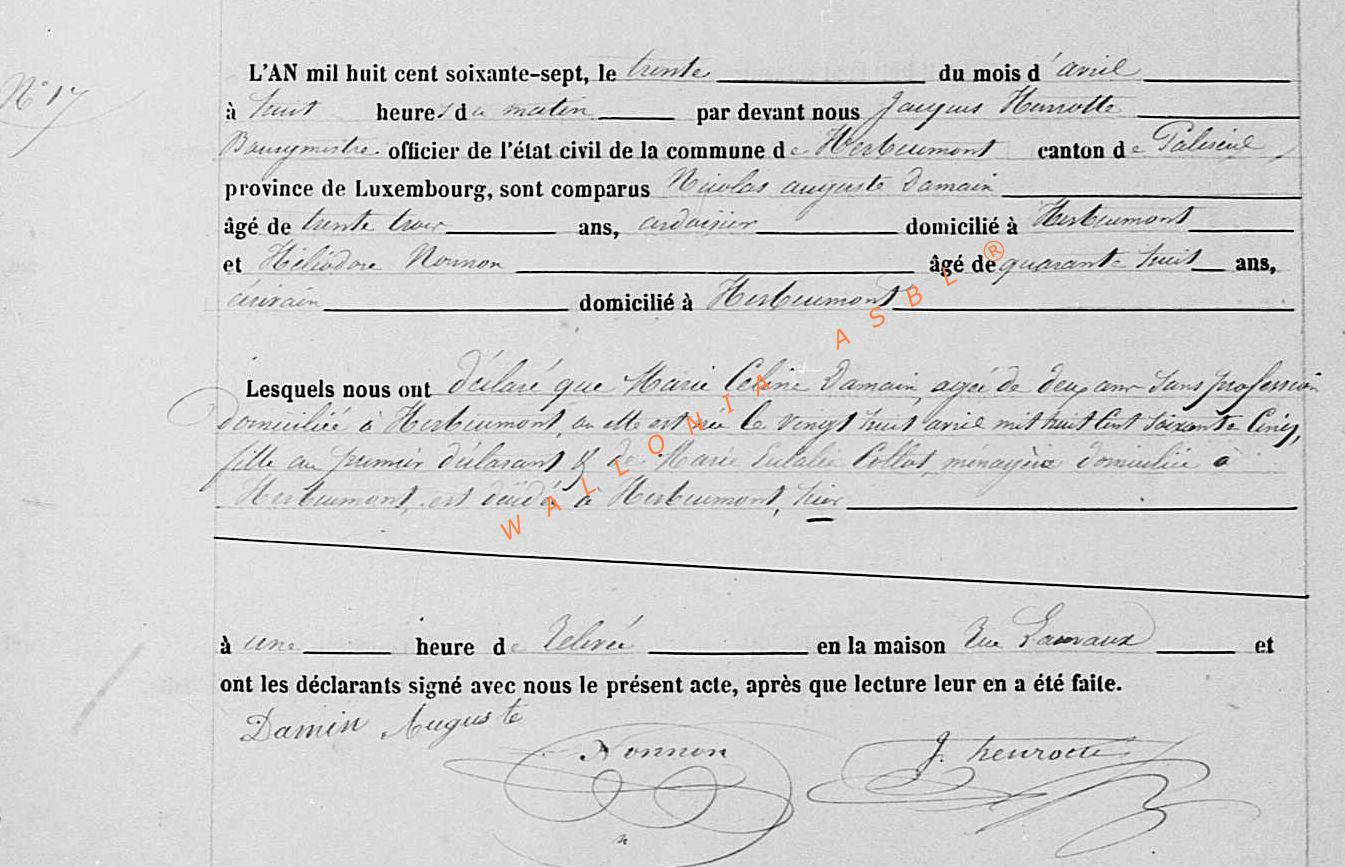 N° 17
L'AN mil huit cent soixante-sept, le trente du mois d'avril
à huit heures du matin par devant nous Jacques Henrotte
Bourgmestre officier de l'état civil de la commune de Herbeumont canton de Paliseul
province de Luxembourg, sont comparus Nicolas auguste Damain
âgé de trente trois ans, ardoisier domicilié à Herbeumont
et Héliodore Nonnon âgé de quarante huit ans,
écrivain domicilié à Herbeumont
Lesquels nous ont déclaré que Marie Céline Damain, agée de deux ans sans profession
domiciliée à Herbeumont, ou elle est née le vingt huit avril mil huit cent soixante cinq,
fille au premier déclarant & de Marie Eulalie Collot, ménagère domiciliée à
Herbeumont, est décédée à Herbeumont, hier
à une heure de relevée en la maison rue et
ont les déclarants signé avec nous le présent acte, après que lecture leur en a été faite.
Damin Auguste
Nonnon J. henrotte
WALLONIA ASBL ®